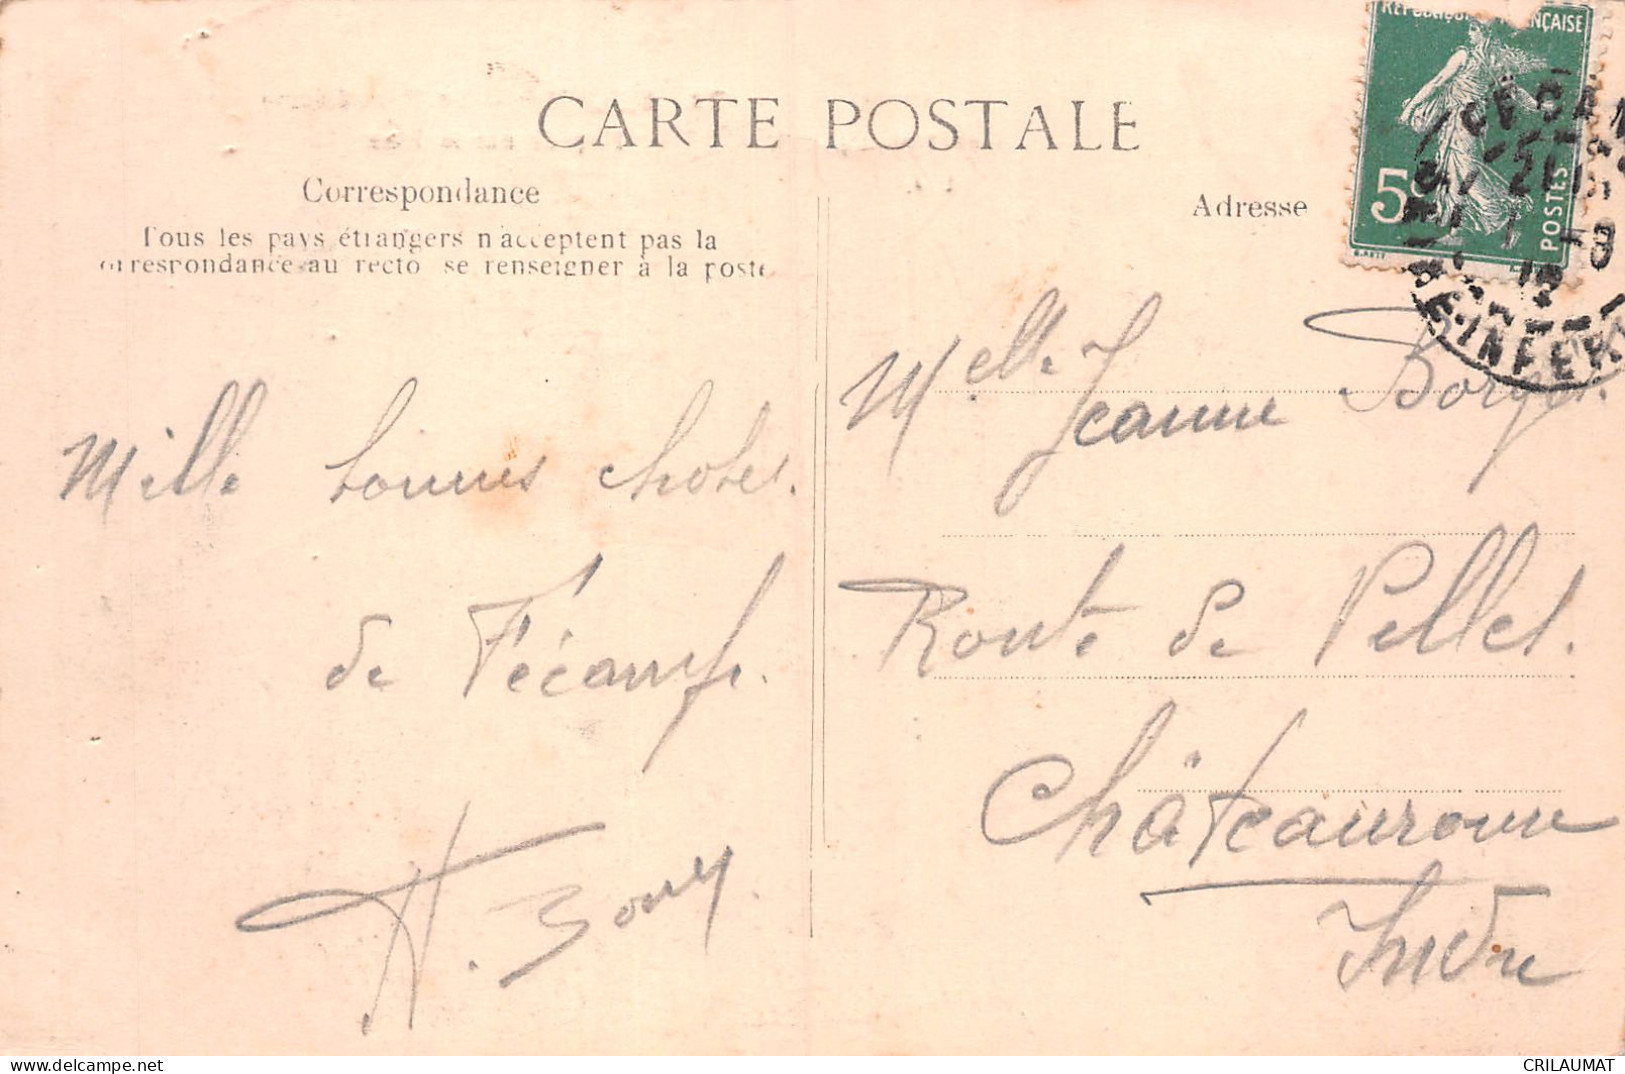 CARTE POSTALE
Correspondance
Tous les pays étrangers n'acceptent pas la
correspondance au recto se renseigner à la poste
Mille bonnes choses.
de Fécamp.
Adresse
RÉPUBLIQUE FRANÇAISE
5c
POSTES
FECAMP
INFER
Melle Jeanne
Route de
Châteauroux
Indre
delcampe.net
CRILAUMAT